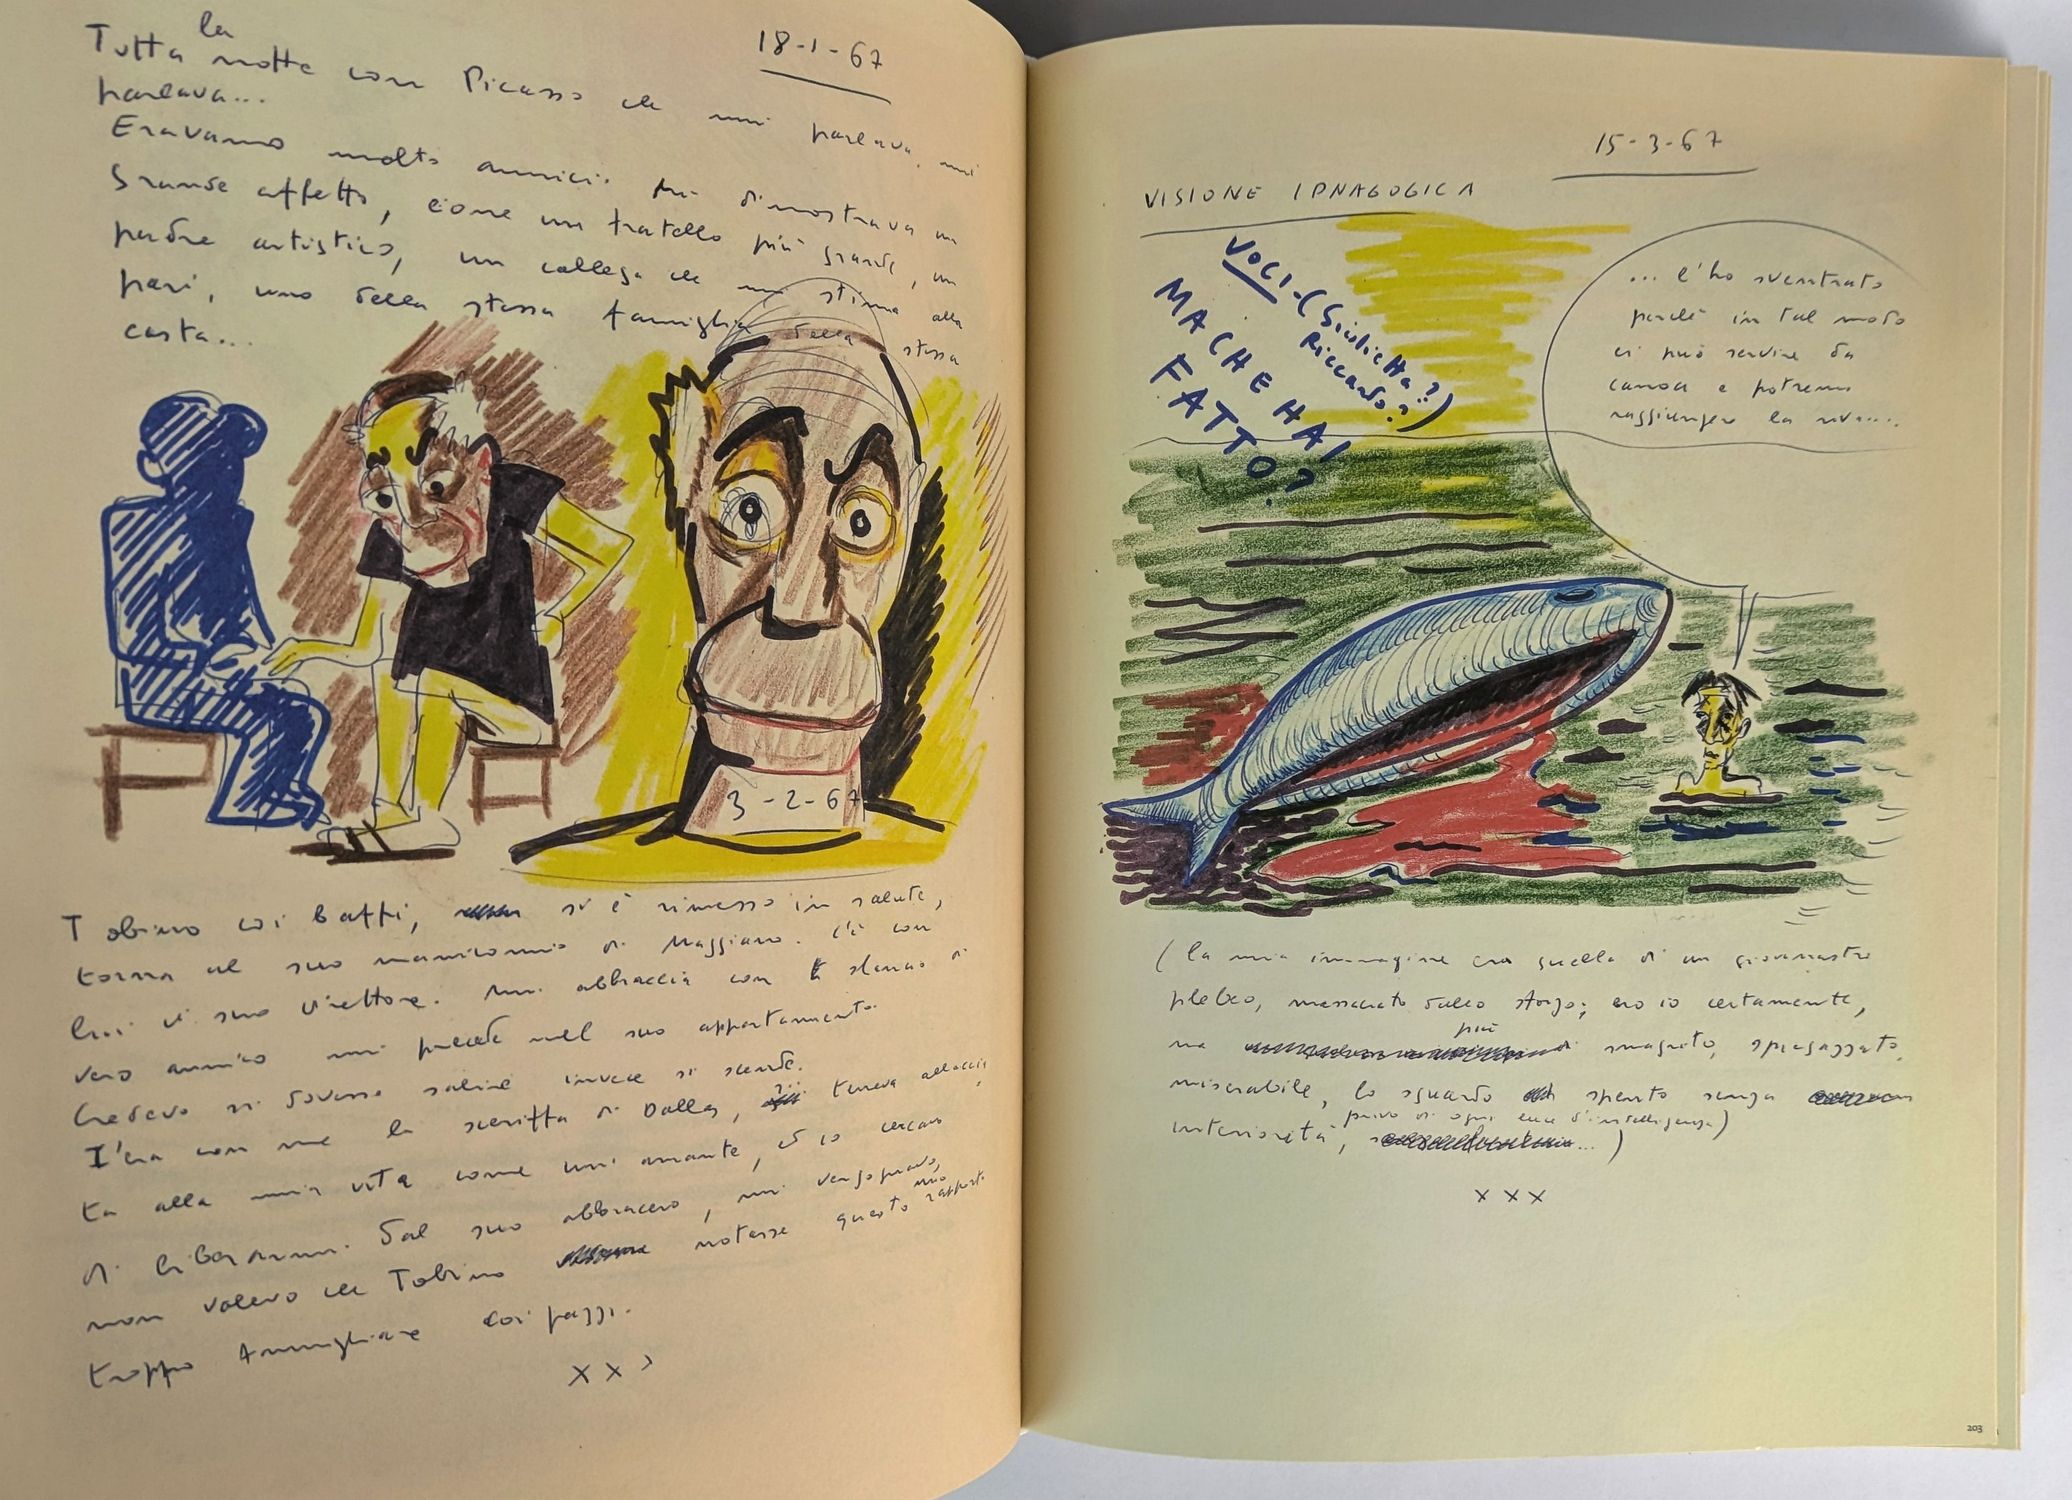 18-1-67
Tutta la notte con Picasso che mi parlava, mi
parlava...
Eravamo molto amici. Mi dimostrava un
grande affetto, come un fratello più grande, un
padre artistico, un collega che mi stima alla
pari, uno della stessa famiglia della stessa
casta...
3-2-67
Tobino coi baffi, si è rimesso in salute,
torna al suo manicomio di Maggiano. C'è con
lui il suo direttore. Mi abbraccia con slancio di
vero amico mi precede nel suo appartamento.
Credevo si dovesse salire invece si scende.
C'era con me la sceriffa di Dallas, teneva allaccia
ta alla mia vita come un'amante, ed io cercavo
di liberarmi dal suo abbraccio, mi vergognavo,
non volevo che Tobino notasse questo mio rapporto
troppo famigliare coi pazzi.
x x x
15-3-67
VISIONE IPNAGOGICA
VOCI-(Giulietta?
Riccardo?)
MA CHE HAI
FATTO?
... l'ho sventrato
perché in tal modo
ci può servire da
canoa e potremo
raggiungere la riva....
(la mia immagine era quella di un giovinastro
plebeo, massacrato dallo sforzo; ero io certamente,
ma più smagrito, spiegazzato,
miserabile, lo sguardo spento senza
interiorità, privo di ogni luce d'intelligenza)
...)
x x x
203